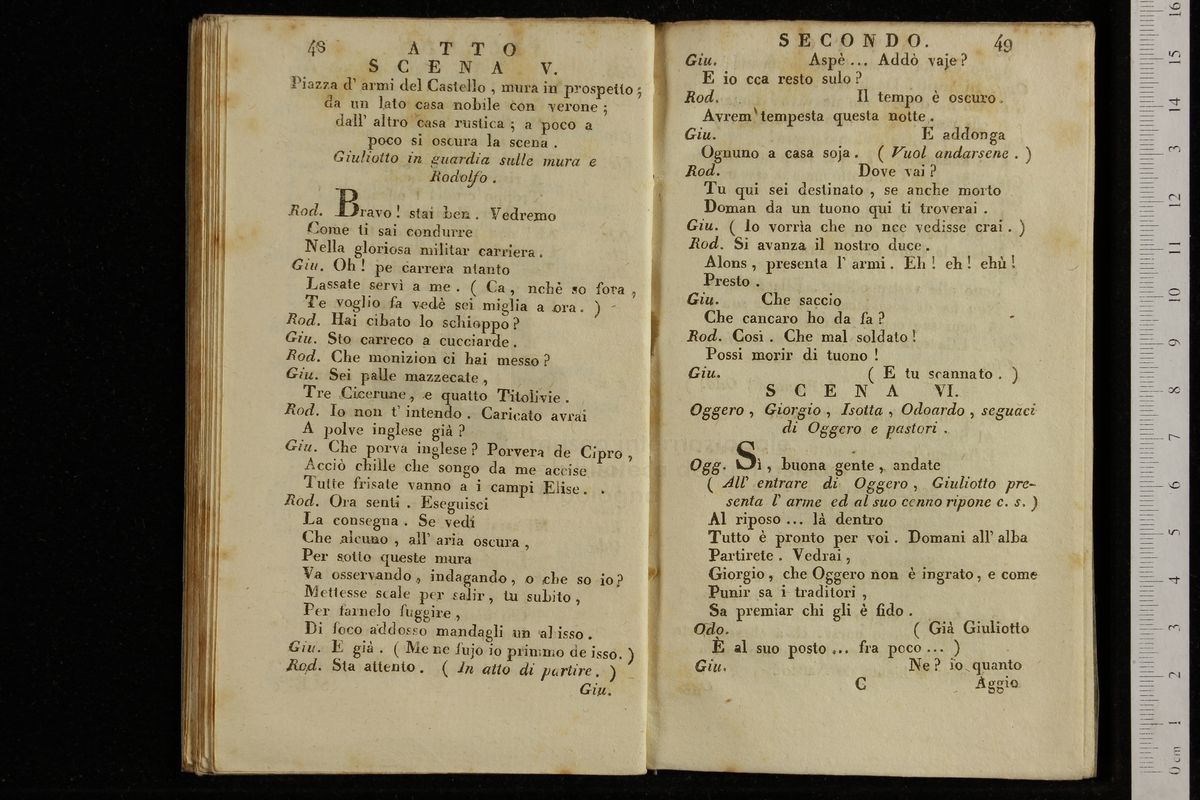 48
ATTO
SCENA V.
Piazza d' armi del Castello , mura in prospetto ;
da un lato casa nobile con verone ;
dall' altro casa rustica ; a poco a
poco si oscura la scena .
Giuliotto in guardia sulle mura e
Rodolfo .
Rod. Bravo ! stai ben . Vedremo
Come ti sai condurre
Nella gloriosa militar carriera .
Giu. Oh ! pe carrera ntanto
Lassate servì a me . ( Ca , nchè so fora ,
Te voglio fa vedè sei miglia a ora . )
Rod. Hai cibato lo schioppo ?
Giu. Sto carreco a cucciarde .
Rod. Che monizion ci hai messo ?
Giu. Sei palle mazzecate ,
Tre Cicerune , e quatto Titolivie .
Rod. Io non t' intendo . Caricato avrai
A polve inglese già ?
Giu. Che porva inglese ? Porvera de Cipro ,
Acciò chille che songo da me accise
Tutte frisate vanno a i campi Elise .
Rod. Ora senti . Eseguisci
La consegna . Se vedi
Che alcuno , all' aria oscura ,
Per sotto queste mura
Va osservando , indagando , o che so io ?
Mettesse scale per salir , tu subito ,
Per farnelo fuggire ,
Di foco addosso mandagli un abisso .
Giu. E già . ( Me ne fujo io primmo de isso . )
Rod. Sta attento . ( In atto di partire . )
Giu.
SECONDO. 49
Giu. Aspè ... Addò vaje ?
E io cca resto sulo ?
Rod. Il tempo è oscuro .
Avrem tempesta questa notte .
Giu. E addonga
Ognuno a casa soja . ( Vuol andarsene . )
Rod. Dove vai ?
Tu qui sei destinato , se anche morto
Doman da un tuono qui ti troverai .
Giu. ( Io vorrìa che no nce vedisse crai . )
Rod. Si avanza il nostro duce .
Alons , presenta l' armi . Eh ! eh ! ehù !
Presto .
Giu. Che saccio
Che cancaro ho da fa ?
Rod. Così . Che mal soldato !
Possi morir di tuono !
Giu. ( E tu scannato . )
SCENA VI.
Oggero , Giorgio , Isotta , Odoardo , seguaci
di Oggero e pastori .
Ogg. Sì , buona gente , andate
( All' entrare di Oggero , Giuliotto pre-
senta l' arme ed al suo cenno ripone c. s. )
Al riposo ... là dentro
Tutto è pronto per voi . Domani all' alba
Partirete . Vedrai ,
Giorgio , che Oggero non è ingrato , e come
Punir sa i traditori ,
Sa premiar chi gli è fido .
Odo. ( Già Giuliotto
È al suo posto ... fra poco ... )
Giu. Ne ? io quanto
C Aggio
0 cm 1 2 3 4 5 6 7 8 9 10 11 12 13 14 15 16